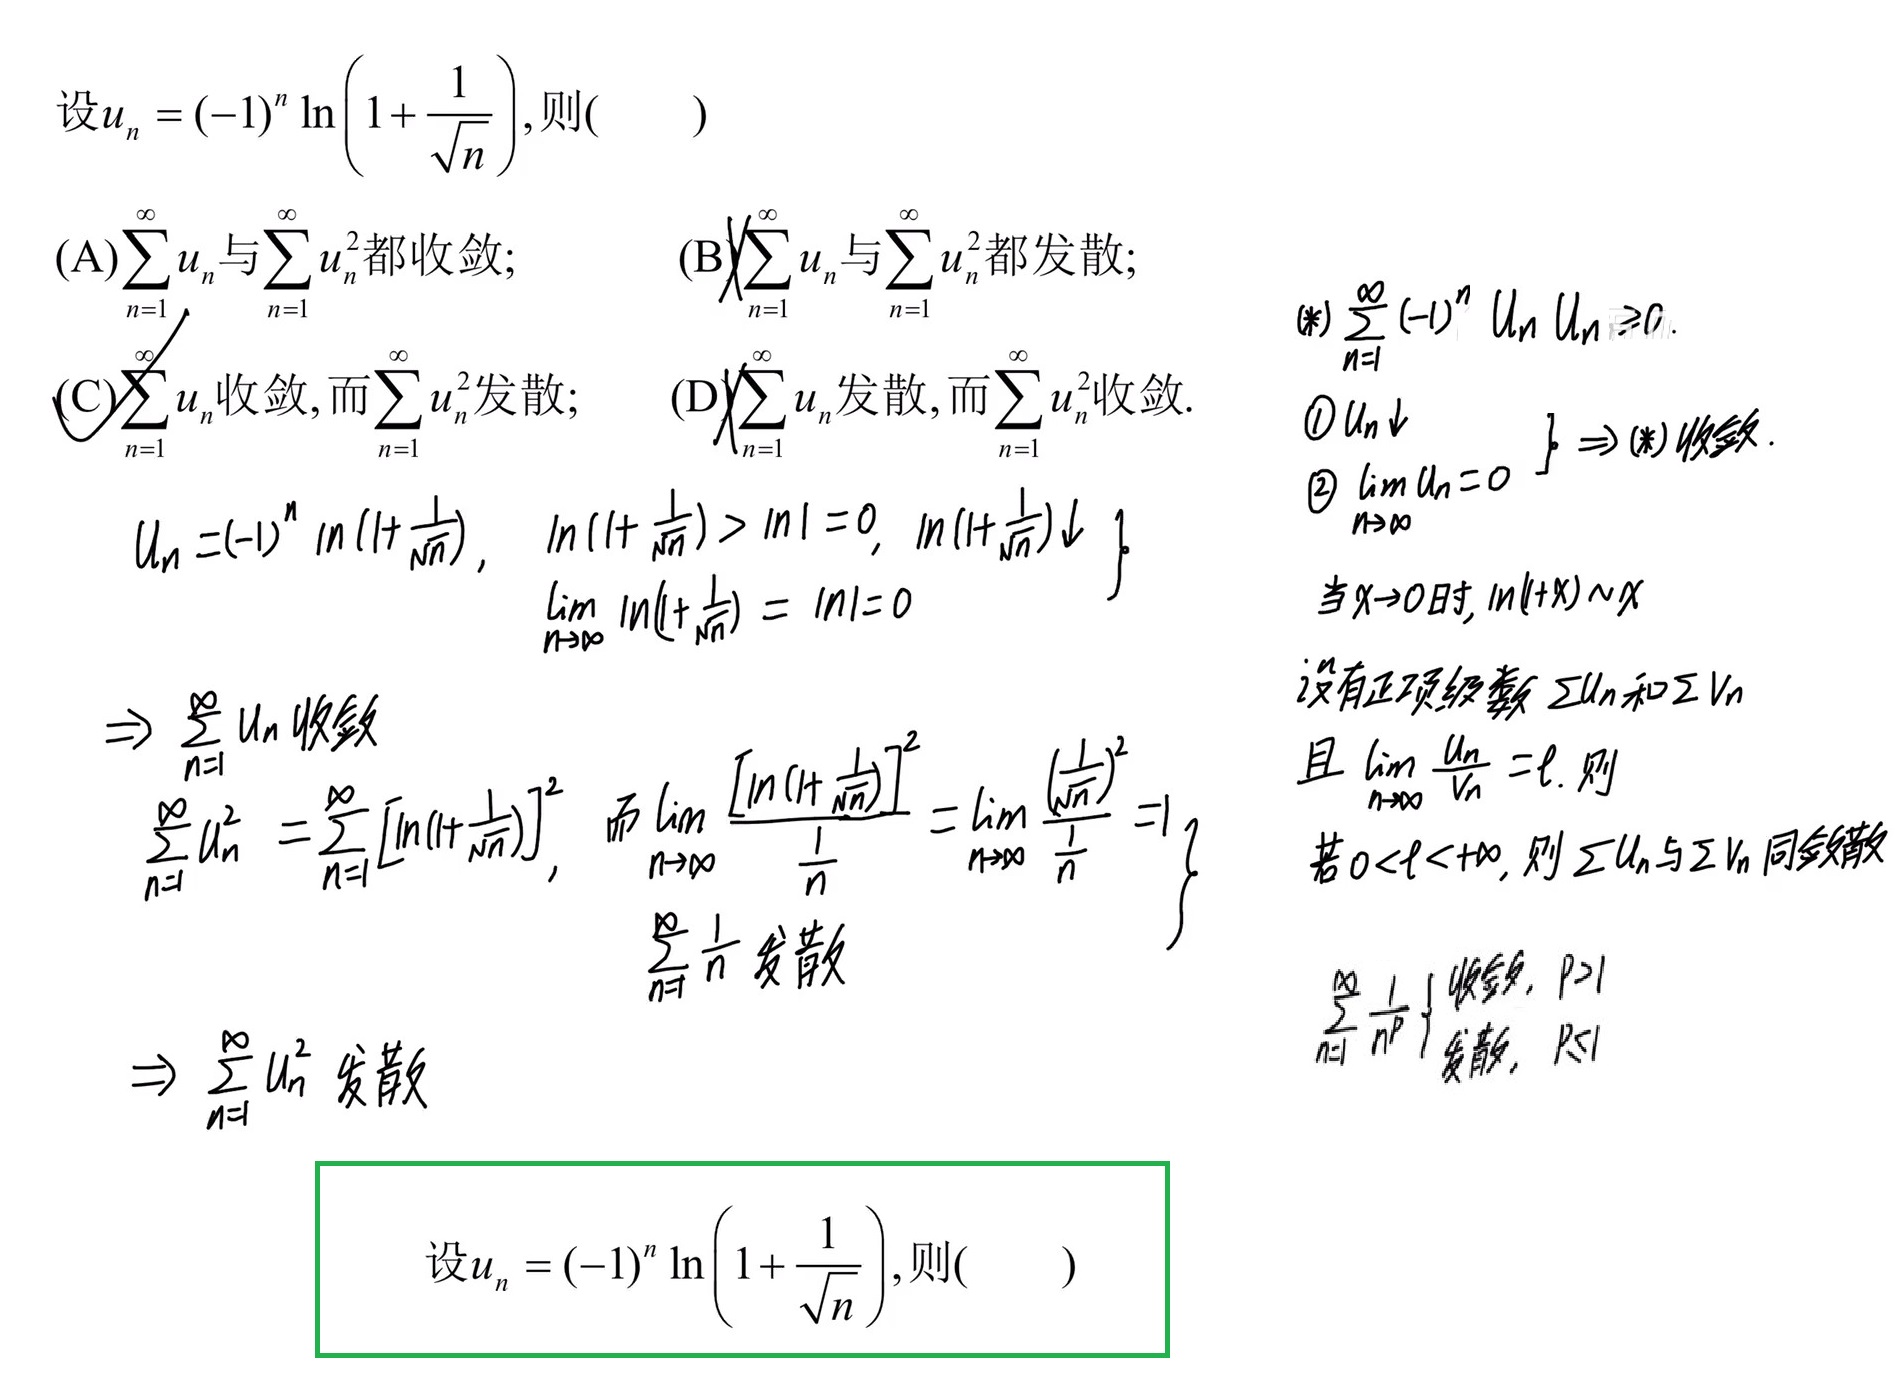 设uₙ = (−1)ⁿ ln(1 + 1/√n), 则(    )
(A) ∑_{n=1}^{∞} uₙ 与 ∑_{n=1}^{∞} uₙ² 都收敛;    (B) ∑_{n=1}^{∞} uₙ 与 ∑_{n=1}^{∞} uₙ² 都发散;
(C) ∑_{n=1}^{∞} uₙ 收敛, 而 ∑_{n=1}^{∞} uₙ² 发散;    (D) ∑_{n=1}^{∞} uₙ 发散, 而 ∑_{n=1}^{∞} uₙ² 收敛.
Uₙ = (−1)ⁿ ln(1+1/√n),  ln(1+1/√n) > ln1 = 0, ln(1+1/√n)↓ }
lim_{n→∞} ln(1+1/√n) = ln1 = 0
⇒ ∑_{n=1}^{∞} Uₙ 收敛
∑_{n=1}^{∞} Uₙ² = ∑_{n=1}^{∞} [ln(1+1/√n)]², 而 lim_{n→∞} [ln(1+1/√n)]² / (1/n) = lim_{n→∞} (1/√n)² / (1/n) = 1 }
∑_{n=1}^{∞} 1/n 发散
⇒ ∑_{n=1}^{∞} Uₙ² 发散
(*) ∑_{n=1}^{∞} (−1)ⁿ Uₙ Uₙ ≥ 0.
① Uₙ↓
② lim_{n→∞} Uₙ = 0 } ⇒ (*) 收敛.
当x→0时, ln(1+x) ~ x
设有正项级数 ∑Uₙ 和 ∑Vₙ
且 lim_{n→∞} Uₙ/Vₙ = ℓ. 则
若 0<ℓ<+∞, 则 ∑Uₙ 与 ∑Vₙ 同敛散
∑_{n=1}^{∞} 1/nᵖ { 收敛, P>1
发散, P≤1
设uₙ = (−1)ⁿ ln(1 + 1/√n), 则(    )